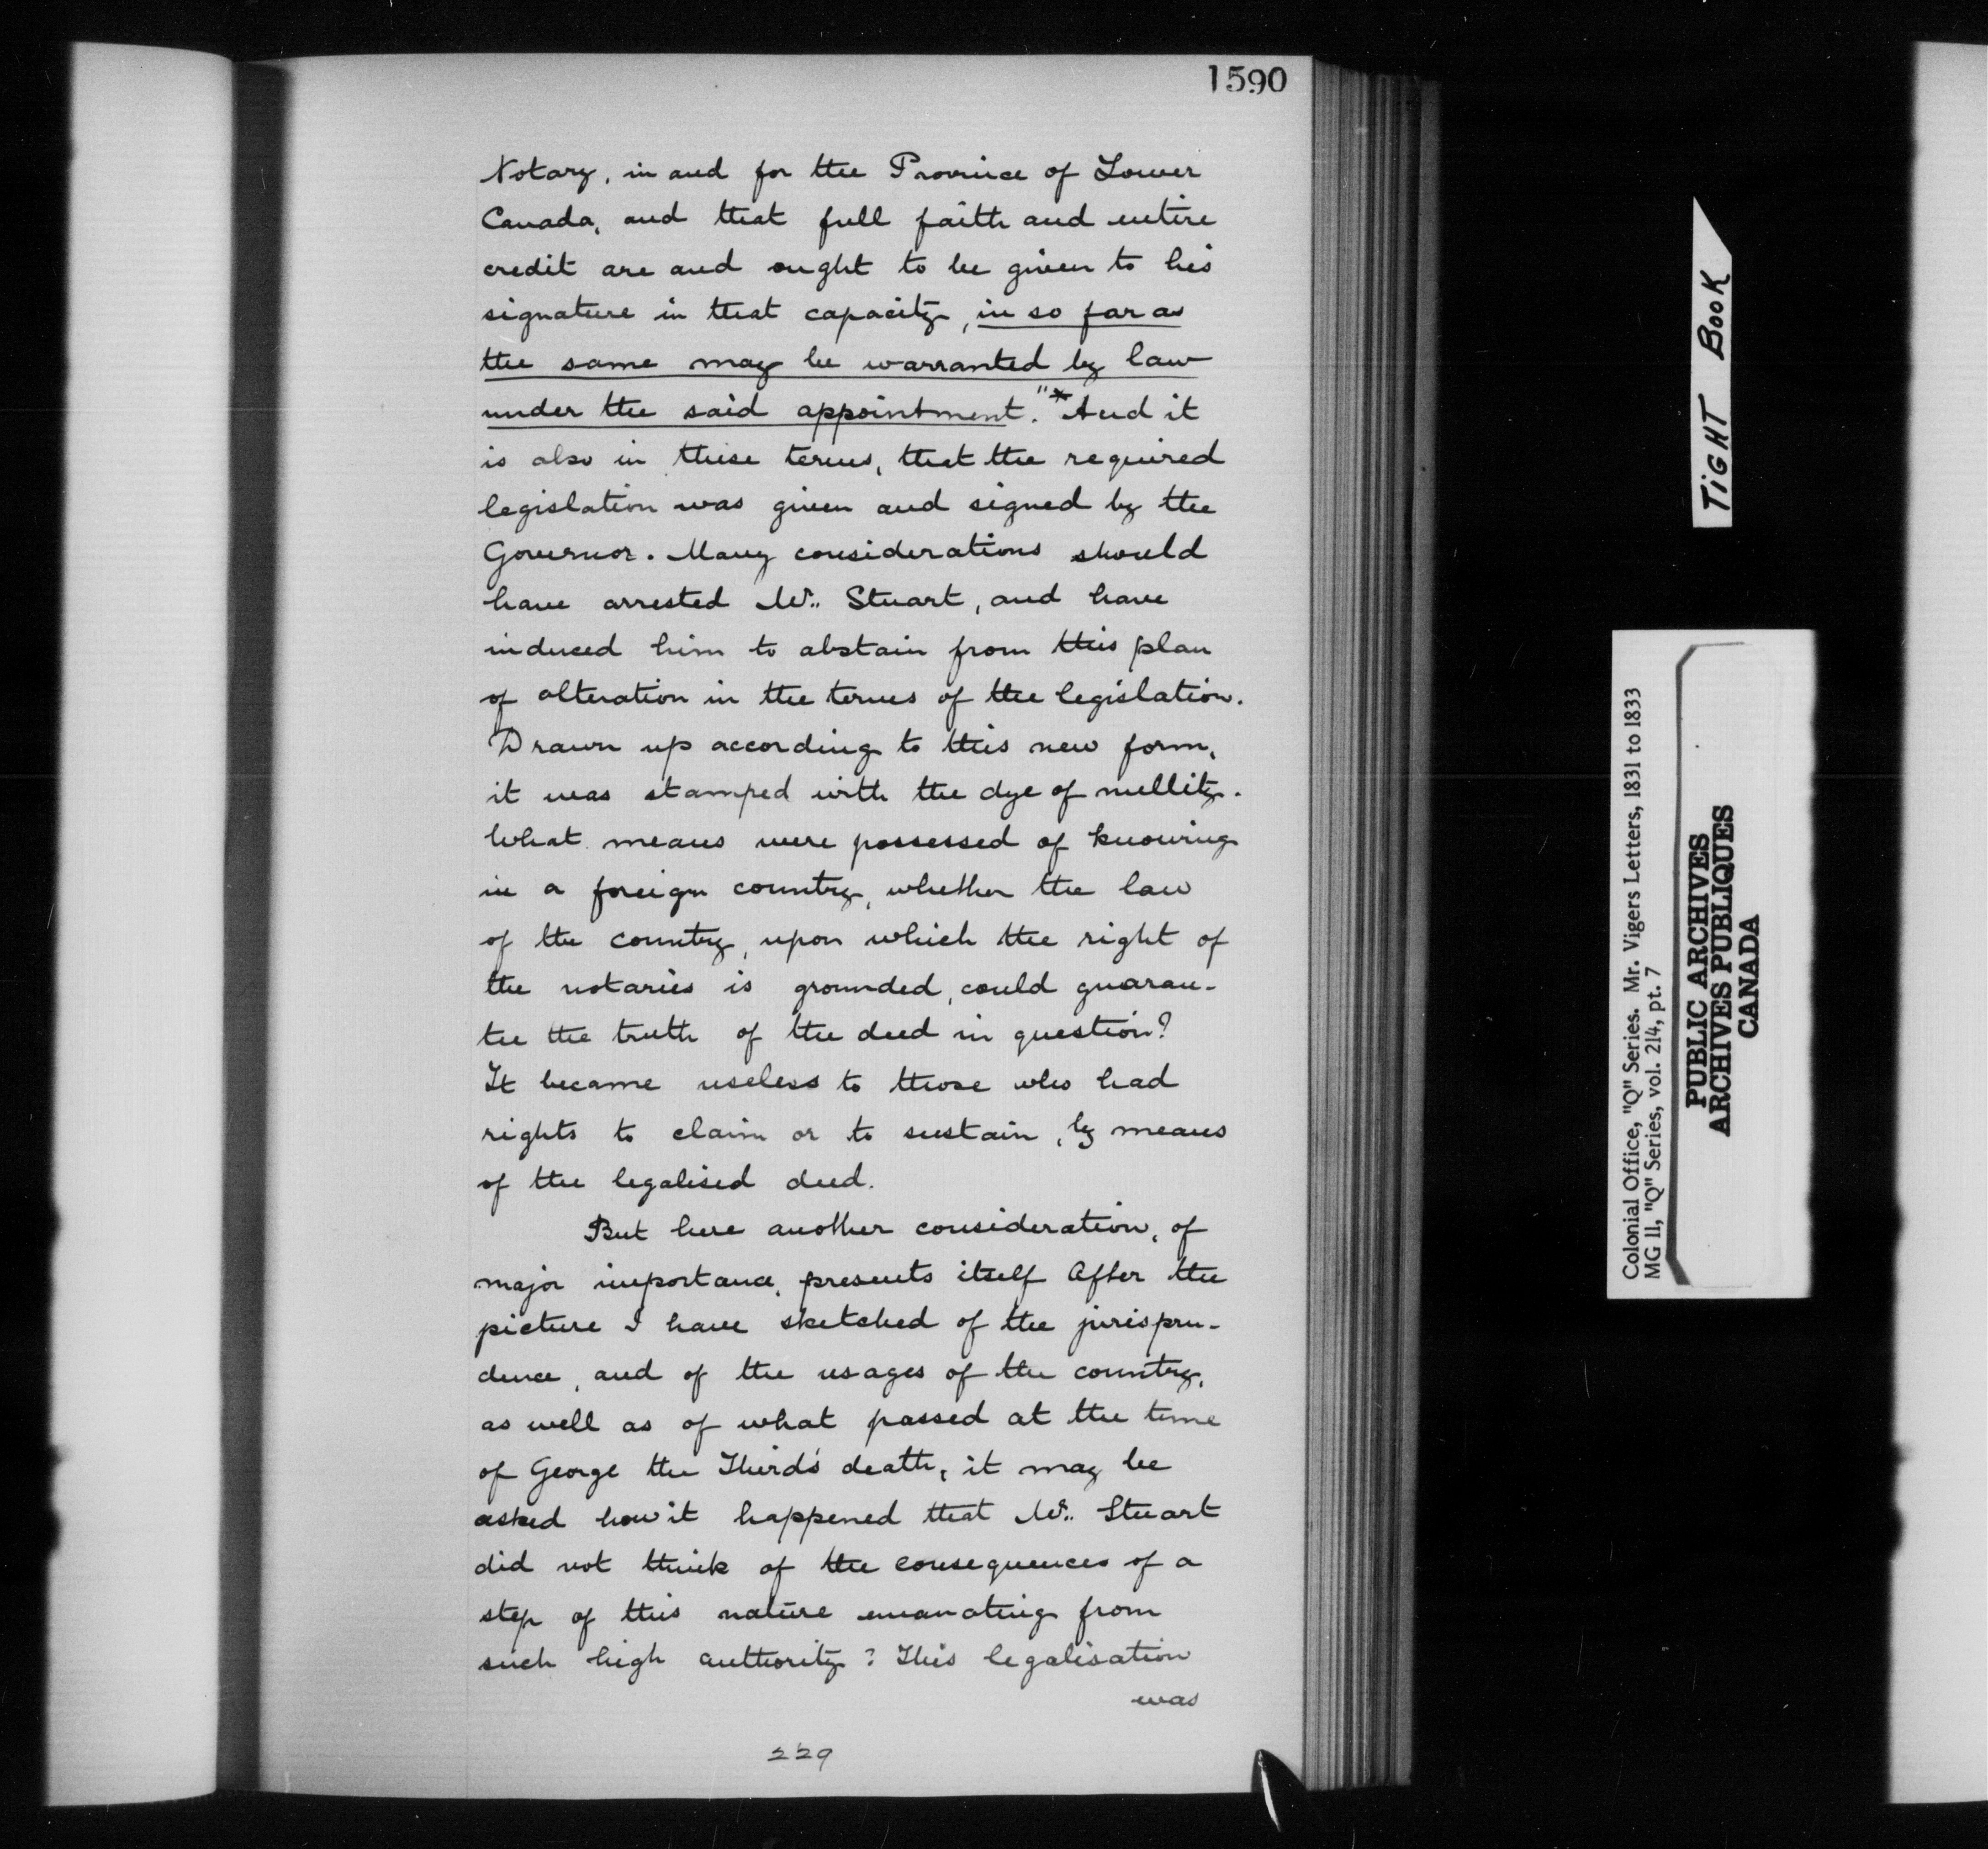 1590
Notary, in and for the Province of Lower
Canada, and that full faith and entire
credit are and ought to be given to his
signature in that capacity, in so far as
the same may be warranted by law
under the said appointment."* And it
is also in these terms, that the required
legislation was given and signed by the
Governor. Many considerations should
have arrested Mr. Stuart, and have
induced him to abstain from this plan
of alteration in the terms of the legislation.
Drawn up according to this new form,
it was stamped with the dye of nullity.
What means were possessed of knowing
in a foreign country, whether the law
of the country, upon which the right of
the notaries is grounded, could guaran-
tee the truth of the deed in question?
It became useless to those who had
rights to claim or to sustain, by means
of the legalised deed.
But here another consideration, of
major importance, presents itself After the
picture I have sketched of the jurispru-
dence, and of the usages of the country,
as well as of what passed at the time
of George the Third's death, it may be
asked how it happened that Mr. Stuart
did not think of the consequences of a
step of this nature emanating from
such high authority? This legalisation
was
229
TIGHT BOOK
Colonial Office, "Q" Series. Mr. Vigers Letters, 1831 to 1833
MG 11, "Q" Series, vol. 214, pt. 7
PUBLIC ARCHIVES
ARCHIVES PUBLIQUES
CANADA